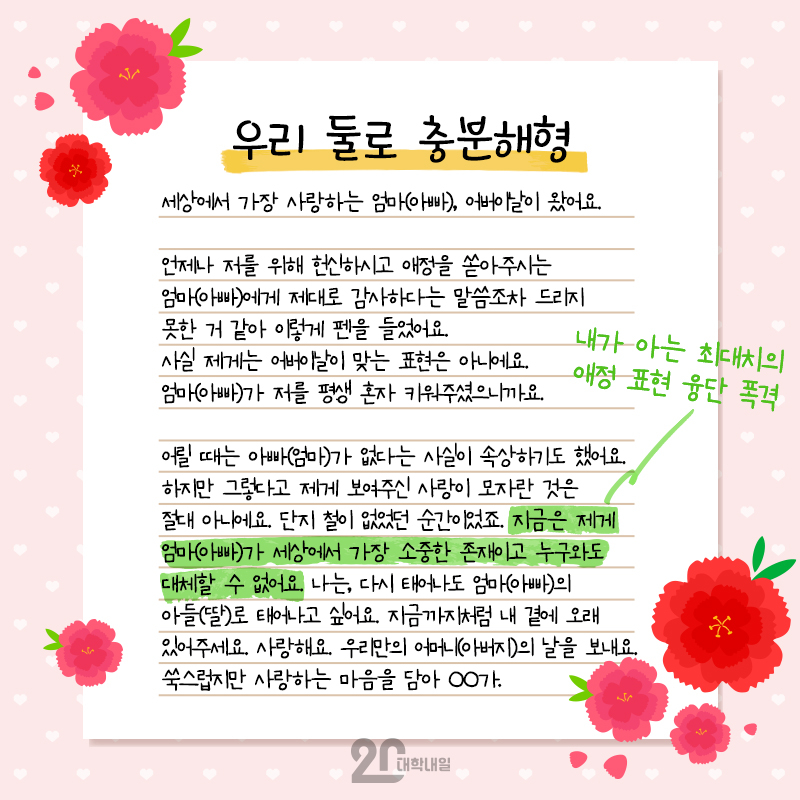 우리 둘로 충분해형
세상에서 가장 사랑하는 엄마(아빠), 어버이날이 왔어요.
언제나 저를 위해 헌신하시고 애정을 쏟아주시는
엄마(아빠)에게 제대로 감사하다는 말씀조차 드리지
못한 거 같아 이렇게 펜을 들었어요.
사실 제게는 어버이날이 맞는 표현은 아니에요.
엄마(아빠)가 저를 평생 혼자 키워주셨으니까요.
내가 아는 최대치의
애정 표현 융단 폭격
어릴 때는 아빠(엄마)가 없다는 사실이 속상하기도 했어요.
하지만 그렇다고 제게 보여주신 사랑이 모자란 것은
절대 아니에요. 단지 철이 없었던 순간이었죠. 지금은 제게
엄마(아빠)가 세상에서 가장 소중한 존재이고 누구와도
대체할 수 없어요. 나는, 다시 태어나도 엄마(아빠)의
아들(딸)로 태어나고 싶어요. 지금까지처럼 내 곁에 오래
있어주세요. 사랑해요. 우리만의 어머니(아버지)의 날을 보내요.
쑥스럽지만 사랑하는 마음을 담아 OO가.
20 대학내일